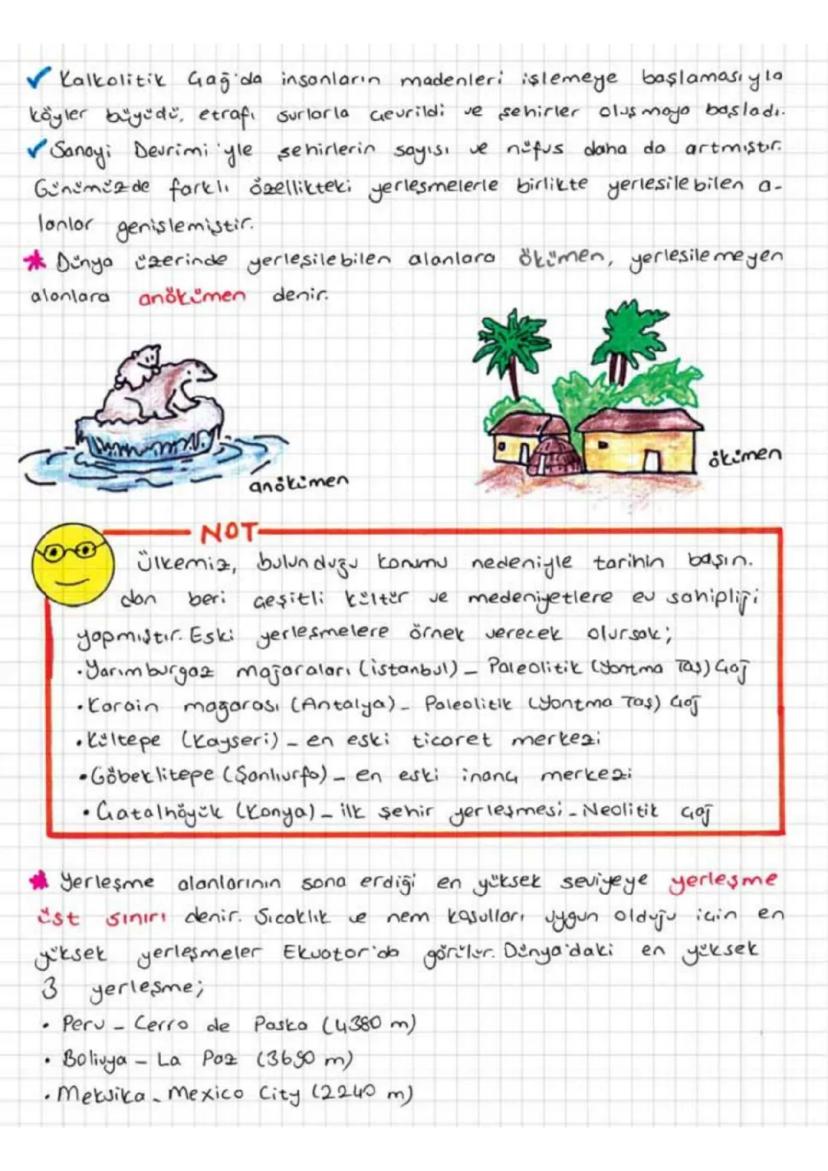 ✓ Kalkolitik Çağ'da insanların madenleri işlemeye başlamasıyla
köyler büyüdü, etrafı surlarla çevrildi ve şehirler oluşmaya başladı.
✓ Sanayi Devrimi'yle şehirlerin sayısı ve nüfus daha da artmıştır.
Günümüzde farklı özellikteki yerleşmelerle birlikte yerleşilebilen a-
lanlar genişlemiştir.
* Dünya üzerinde yerleşilebilen alanlara ökümen, yerleşilemeyen
alanlara anökümen denir.
anökümen
ökümen
NOT
Ülkemiz, bulunduğu konumu nedeniyle tarihin başın.
dan beri çeşitli kültür ve medeniyetlere ev sahipliği
yapmıştır. Eski yerleşmelere örnek verecek olursak;
• Yarımburgaz mağaraları (İstanbul) – Paleolitik (Yontma Taş) Çağ
• Karain magarası (Antalya) – Paleolitik (Yontma Taş) Çağ
• Kültepe (Kayseri) – en eski ticaret merkezi
• Göbeklitepe (Şanlıurfa) – en eski inanç merkezi
• Çatalhöyük (Konya) – ilk şehir yerleşmesi – Neolitik Çağ
* Yerleşme alanlarının sona erdiği en yüksek seviyeye yerleşme
üst sınırı denir. Sıcaklık ve nem koşulları uygun olduğu için en
yüksek yerleşmeler Ekvator'da görülür. Dünya'daki en yüksek
3 yerleşme;
• Peru – Cerro de Pasko (4380 m)
• Bolivya – La Paz (3690 m)
• Meksika – Mexico City (2240 m)